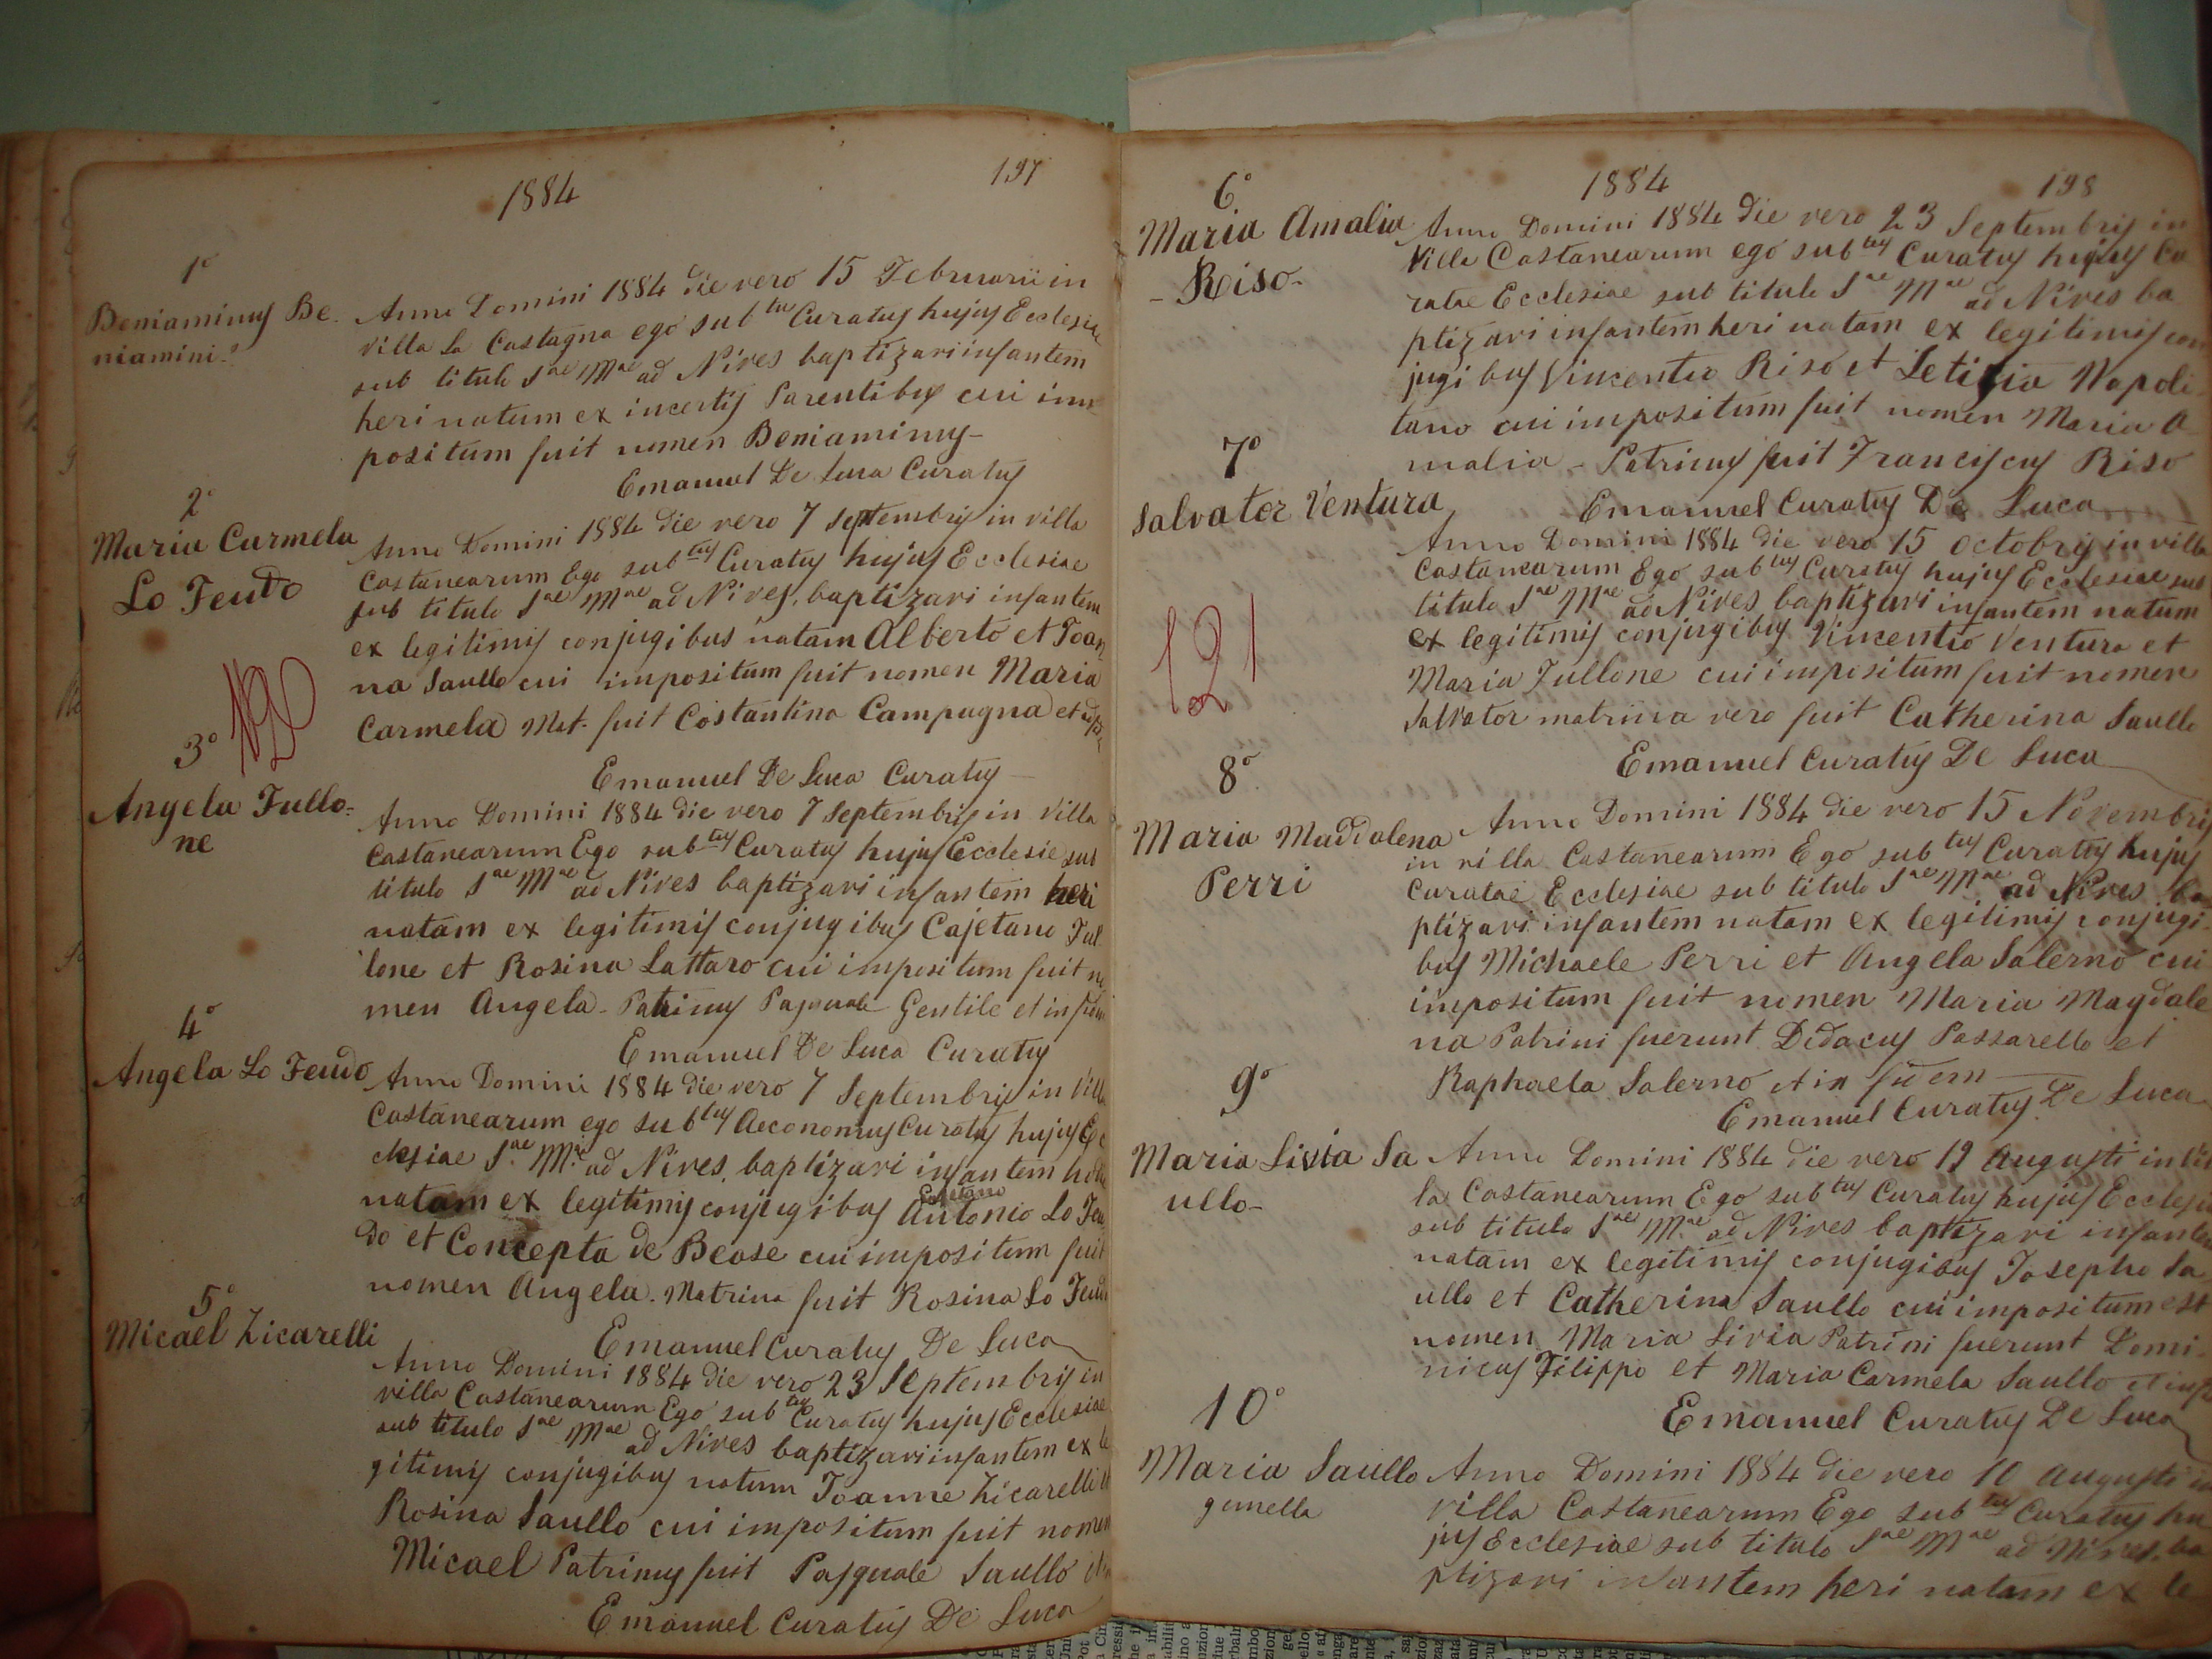 1884
197
1°
Beniaminus Be
niamini
Anno Domini 1884 die vero 15 Februarii in
villa La Castagna ego subtus Curatus hujus Ecclesiae
sub titulo Sae Mae ad Nives baptizavi infantem
heri natum ex incertis Parentibus cui im
positum fuit nomen Beniaminus -
Emanuel De Luca Curatus
2°
Maria Carmela
Lo Feudo
Anno Domini 1884 die vero 7 Septembris in villa
Castanearum Ego subtus Curatus hujus Ecclesiae
sub titulo Sae Mae ad Nives, baptizavi infantem
ex legitimis conjugibus natam Alberto et Joan
na Saullo cui impositum fuit nomen Maria
Carmela Mat. fuit Costantina Campagna et
Emanuel De Luca Curatus
3°
Angela Fullo-
ne
Anno Domini 1884 die vero 7 Septembris in Villa
Castanearum Ego subtus Curatus hujus Ecclesie sub
titulo Sae Mae ad Nives baptizavi infantem heri
natam ex legitimis conjugibus Cajetano Ful
lone et Rosina Lattaro cui impositum fuit no
men Angela - Patrinus Pasquale Gentile et in fidem
Emanuel De Luca Curatus
4°
Angela Lo Feudo
Anno Domini 1884 die vero 7 Septembris in Villa
Castanearum ego subtus Aeconomus Curatus hujus Ec
clesiae Sae Mae ad Nives, baptizavi infantem
natam ex legitimis conjugibus Antonio Lo Feu
Gaetano
do et Concepta de Beose cui impositum fuit
nomen Angela. Matrina fuit Rosina Lo Feudo
Emanuel Curatus De Luca
5°
Micael Zicarelli
Anno Domini 1884 die vero 23 Septembris in
villa Castanearum Ego subtus Curatus hujus Ecclesiae
sub titulo Sae Mae ad Nives baptizavi infantem ex le
gitimis conjugibus natum Joanne Zicarelli et
Rosina Saullo cui impositum fuit nomen
Micael Patrinus fuit Pasquale Saullo
Emanuel Curatus De Luca
1884
198
6°
Maria Amalia
- Riso -
Anno Domini 1884 die vero 23 Septembris in
Villa Castanearum ego subtus Curatus hujus Cu
ratae Ecclesiae sub titulo Sae Mae ad Nives ba
ptizavi infantem heri natam ex legitimis con
jugibus Vincentio Riso et Letizia Napoli
tano cui impositum fuit nomen Maria A
malia - Patrinus fuit Franciscus Riso
Emanuel Curatus De Luca
7°
Salvator Ventura
121
Anno Domini 1884 die vero 15 Octobris in villa
Castanearum Ego subtus Curatus hujus Ecclesiae sub
titulo Sae Mae ad Nives baptizavi infantem natum
ex legitimis conjugibus Vincentio Ventura et
Maria Fullone cui impositum fuit nomen
Salvator matrina vero fuit Catherina Saullo
Emanuel Curatus De Luca
8°
Maria Maddalena
Perri
Anno Domini 1884 die vero 15 Novembris
in villa Castanearum Ego subtus Curatus hujus
Curatae Ecclesiae sub titulo Sae Mae ad Nives ba
ptizavi infantem natam ex legitimis conjugi-
bus Michaele Perri et Angela Salerno cui
impositum fuit nomen Maria Magdale
na Patrini fuerunt Didacus Passarello et
Raphaela Salerno et in fidem
Emanuel Curatus De Luca
9°
Maria Livia Sa
ullo -
Anno Domini 1884 die vero 12 Augusti in Vil
la Castanearum Ego subtus Curatus hujus Ecclesiae
sub titulo Sae Mae ad Nives baptizavi infantem
natam ex legitimis conjugibus Josepho Sa
ullo et Catherina Saullo cui impositum est
nomen Maria Livia Patrini fuerunt Domi-
nicus Filippo et Maria Carmela Saullo
Emanuel Curatus De Luca
10°
Maria Saullo
gemella
Anno Domini 1884 die vero 10 Augusti in
villa Castanearum Ego subtus Curatus hu
jus Ecclesiae sub titulo Sae Mae ad Nives, ba
ptizavi infantem heri natam ex le